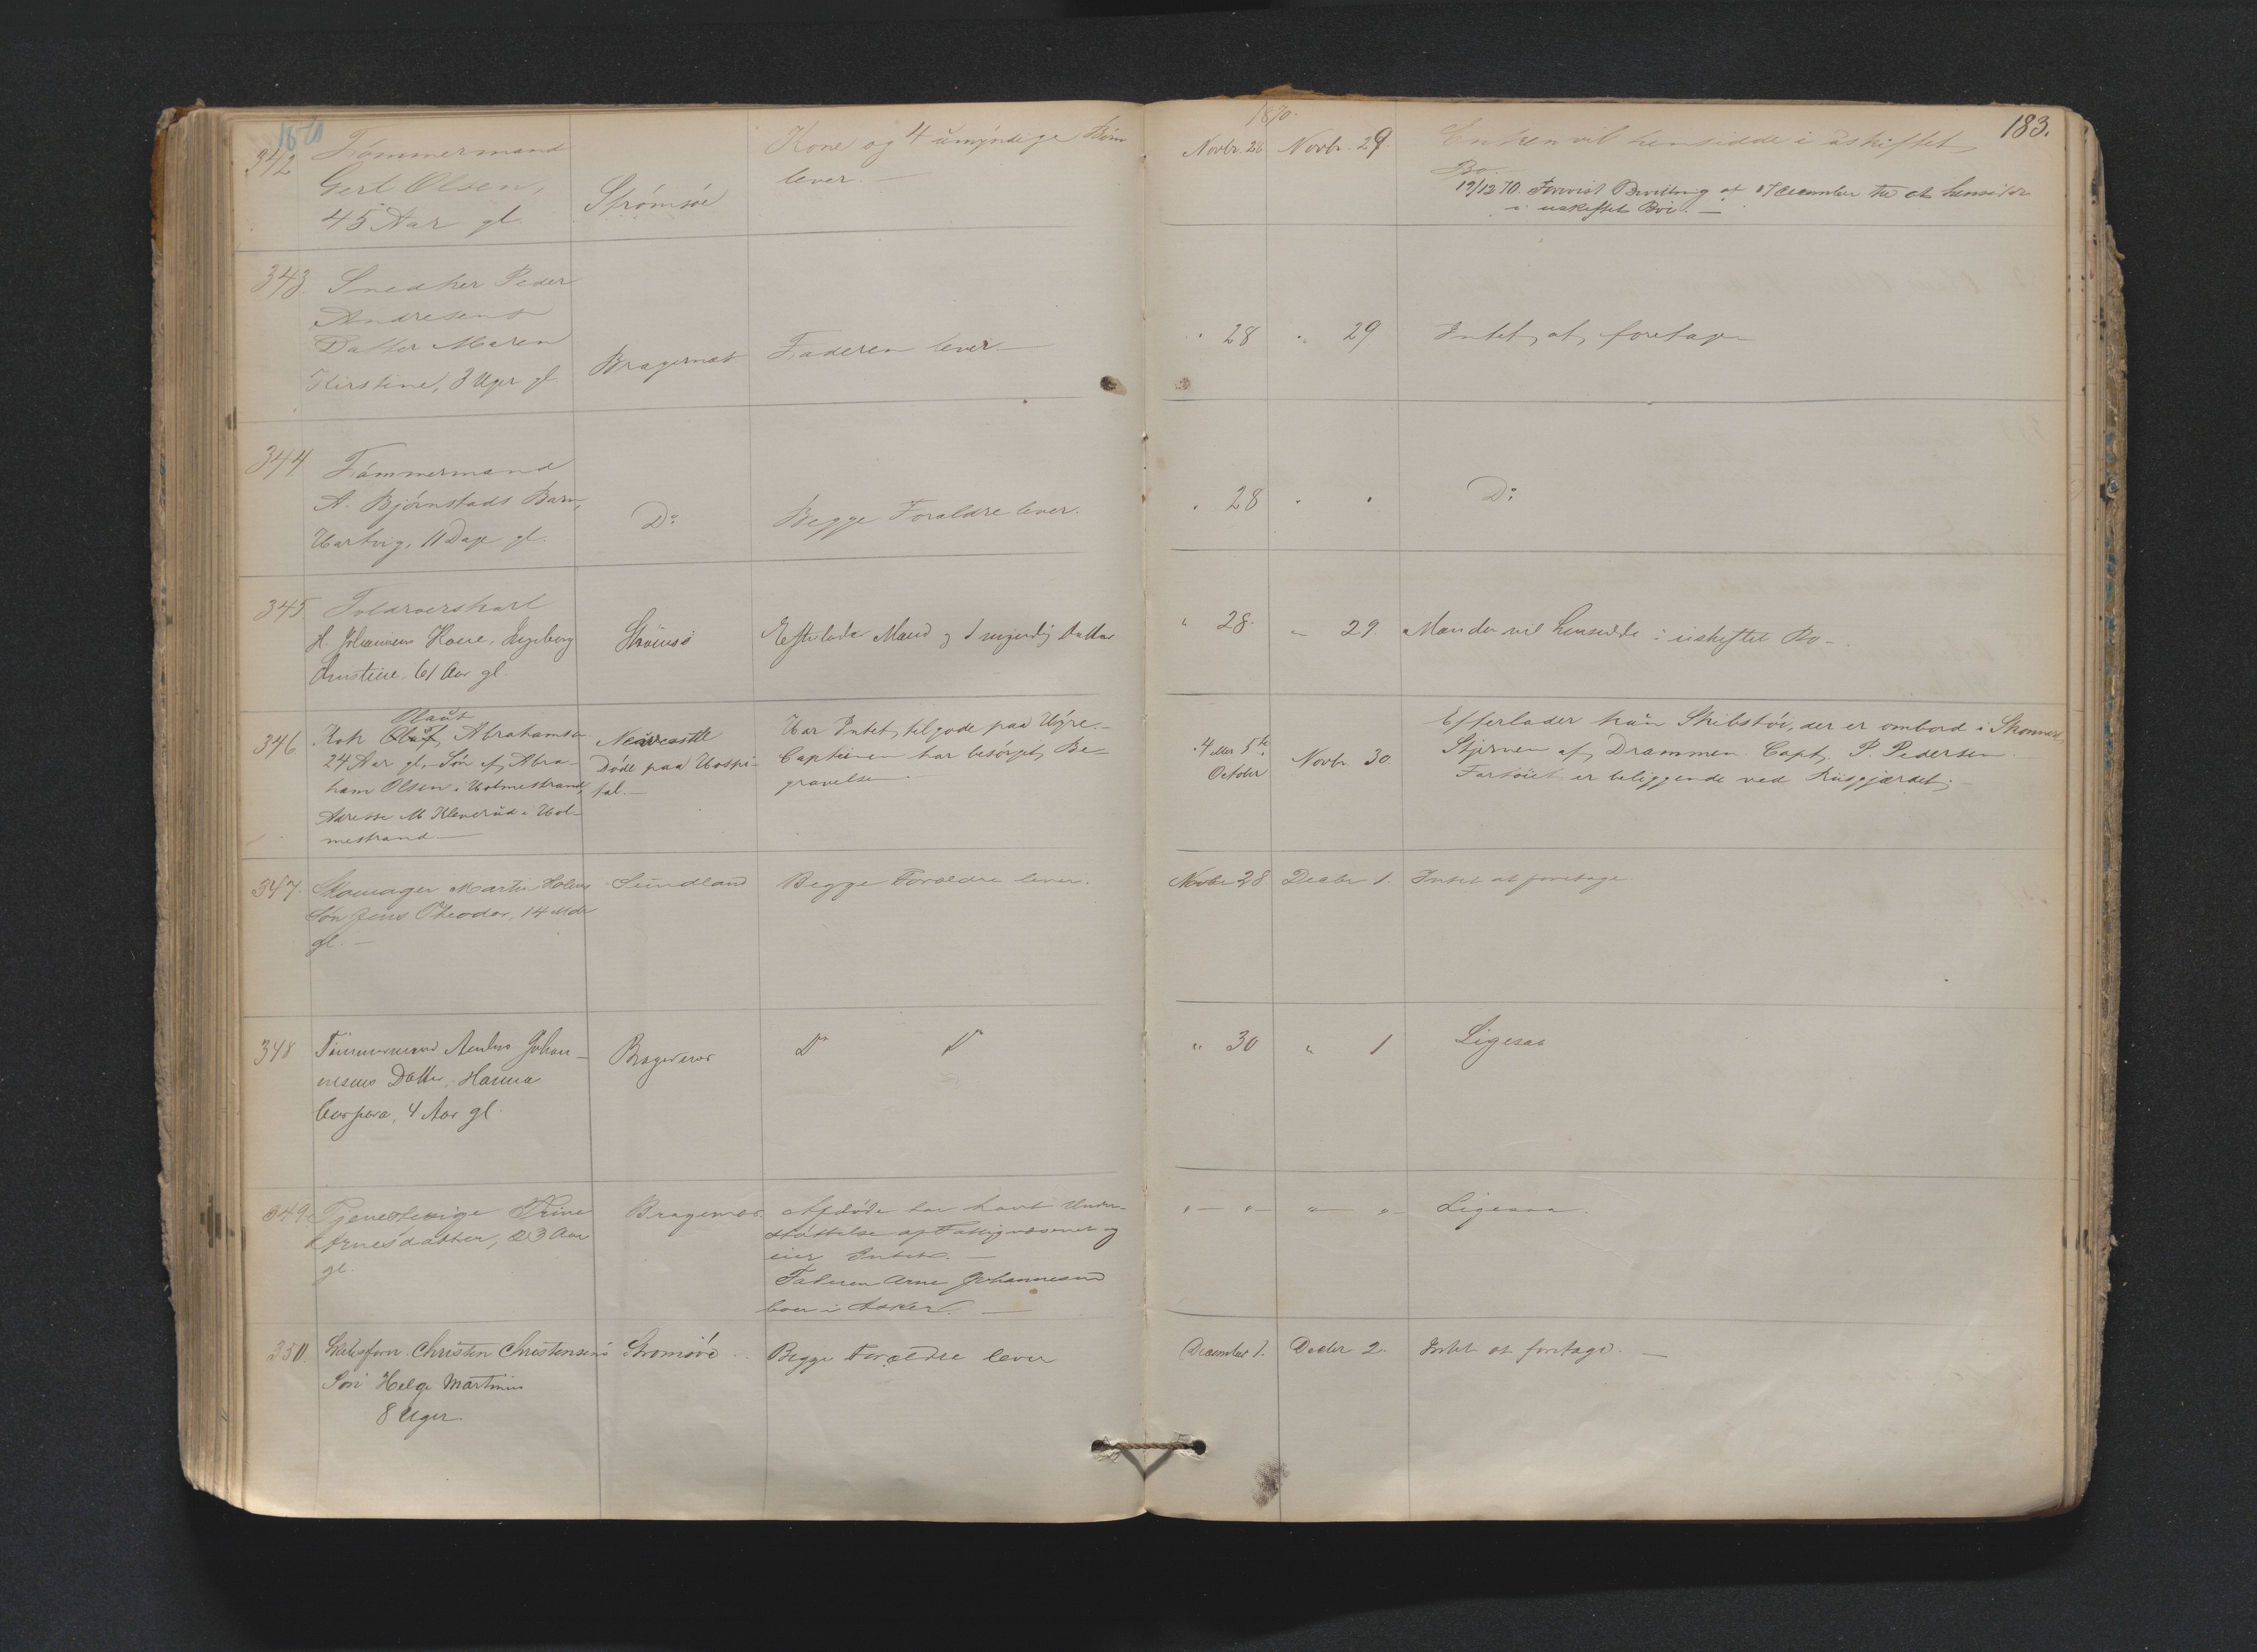 1870
342
Tømmermand
Gert Olsen,
45 Aar gl.
Strømsøe
Kone og 4 umyndige Børn
lever. —
343.
Snedker Peder
Andresens
Datter Maren
Kirstine, 3 Uger gl.
Bragernæs
Faderen lever. —
344.
Tømmermand
A. Bjørnstads Barn,
Hartvig, 11 Dage gl.
Do
Begge Forældre lever.
345.
H. Johansens Kone, Ingeborg
Christine, 61 Aar gl.
Strømsø
Efterlader Mand og 1 myndig Datter
346.
Olaus
Kok Oluf Abrahamsen
24 Aar gl. Søn af Abra-
ham Olsen i Holmestrand,
Adresse M. Kleverud i Hol-
mestrand —
Newcastle
Døde paa Hospi-
tal. —
Har Intet tilgode paa Hyre. —
Captainen har besørget Be-
gravelsen.
347.
Skomager Martin Holms
Søn Jens Theodor, 14 Mdr
gl. —
Sundland
Begge Forældre lever.
348
Tømmermand Anders Johan-
nesens Datter, Hanna
4 Aar gl.
Bragernes
Do Do
349.
Tjenestepige Trine
Arnesdatter, 23 Aar
gl.
Bragernæs.
Afdøde har havt Under-
støttelse af Fattigvæsenet og
eier Intet. —
Faderen Arne Johannesen
boer i Asker. —
350.
Skibsfører Christen Christensens
Søn Helge Martinius
8 Uger.
Strømsøe
Begge Forældre lever
1870.
183.
Novbr. 28 Novbr. 29.
Enken vil hensidde i uskiftet
Bo.
19/12 70. Forevist Bevilling af 17 December til at hensidde
i uskiftet Boe. —
" 28 " 29
Intet at foretage
" 28 " "
Do
" 28. " 29.
Manden vil hensidde i uskiftet Bo —
4 eller 5te
October
Novbr 30.
Efterlader kun Skibstøi, der er ombord i Skonnert
Stjernen af Drammen, Capt. P. Pedersen.
Fartøiet er beliggende ved Riisgjærdet. —
Novbr 28 Decbr 1.
Intet at foretage
" 30 " 1
Ligesaa
" — " — " — " —
Ligesaa.
December 1. Decbr 2.
Intet at foretage. —